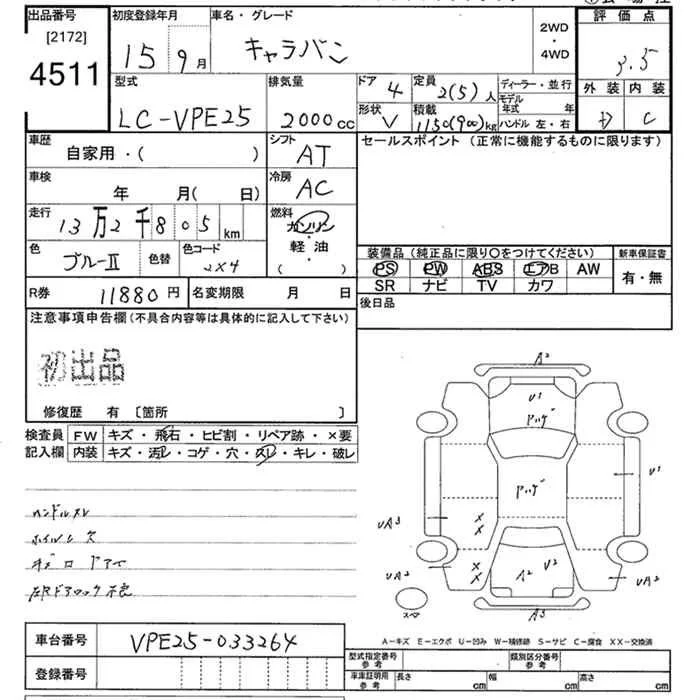 出品番号 初度登録年月 車名・グレード 2WD・4WD 評価点
[2172]
4511
15 9月 キャラバン 3.5
型式 排気量 ドア 4 定員 2(5)人 ディーラー・並行 外装 内装
LC-VPE25 2000cc 形状 V 積載 1150(900)kg モデル年式 年 C
ハンドル 左・右
車歴 シフト セールスポイント(正常に機能するものに限ります)
自家用・( ) AT
車検 冷房
年 月( 日) AC
走行 燃料
13万2千805km ガソリン・軽・油
( )
色 ブルーII 色替 色コード 2×4
装備品(純正品に限り○をつけてください) 新車保証書
PS PW ABS エアB AW 有・無
SR ナビ TV カワ
R券 11880円 名変期限 月 日 後日品
注意事項申告欄(不具合内容等は具体的に記入して下さい)
初出品
修復歴 有 〔箇所 〕
検査員 FW キズ・飛石・ヒビ割・リペア跡・×要
記入欄 内装 キズ・汚レ・コゲ・穴・スレ・キレ・破レ
ハンドルスレ
A2
U1
U1
UA3
U2
A2
UA2
UA2
スペア
A3
A-キズ E-エクボ U-凹み W-補修跡 S-サビ C-腐食 XX-交換済
車台番号 VPE25-033264
型式指定番号 参考 類別区分番号 参考
登録番号
車庫証明用 参考 長さ cm 幅 cm 高さ cm